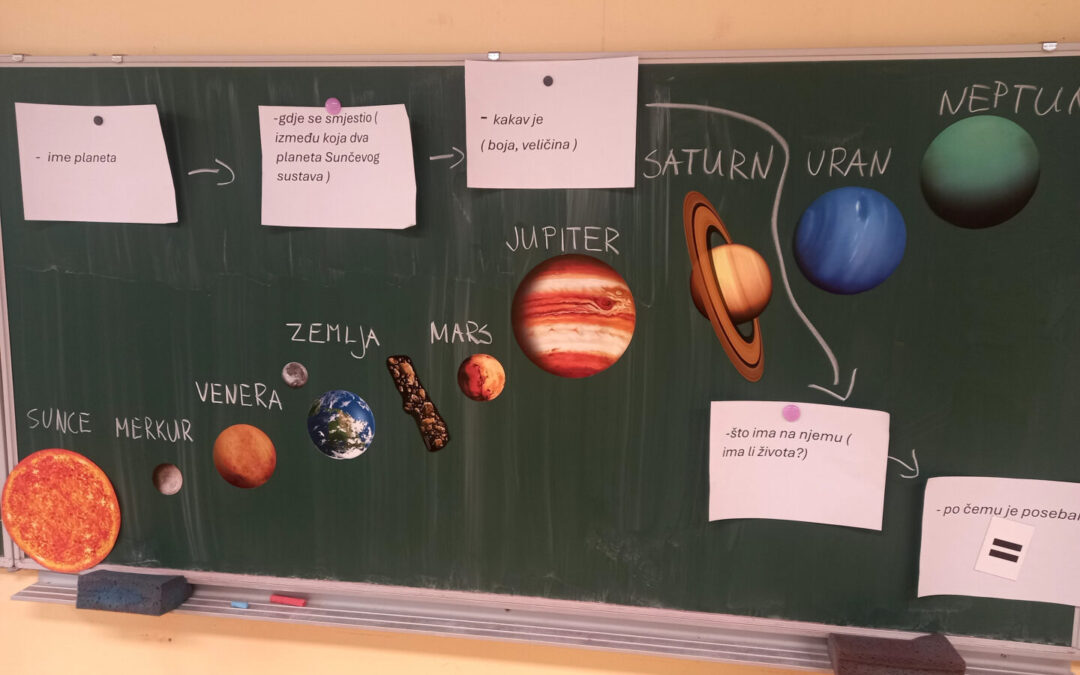 - ime planeta
-gdje se smjestio (
između koja dva
planeta Sunčevog
sustava )
- kakav je
( boja, veličina )
NEPTUN
SATURN
URAN
JUPITER
ZEMLJA
MARS
VENERA
SUNCE
MERKUR
-što ima na njemu (
ima li života?)
- po čemu je poseban
=